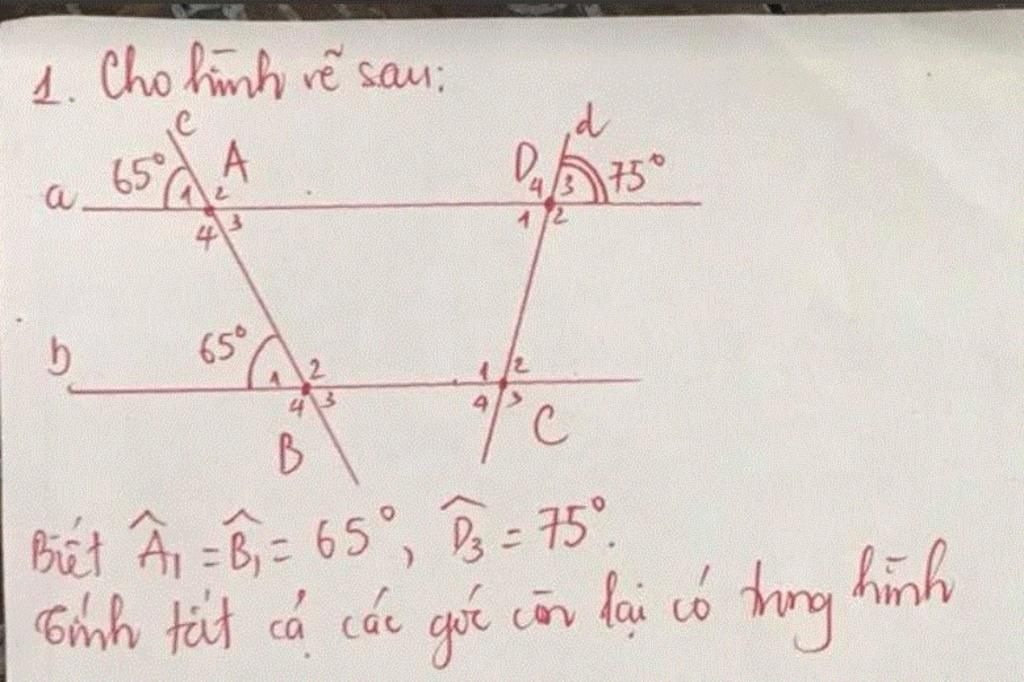 1. Cho hình vẽ sau:
c
65° A D d 75°
a 1 2 4 3
4 3 1 2
b 65° 1 2 1 2
4 3 4 3
B C
Biết Â₁ = B̂₁ = 65°, D̂₃ = 75°.
Tính tất cả các góc còn lại có trong hình